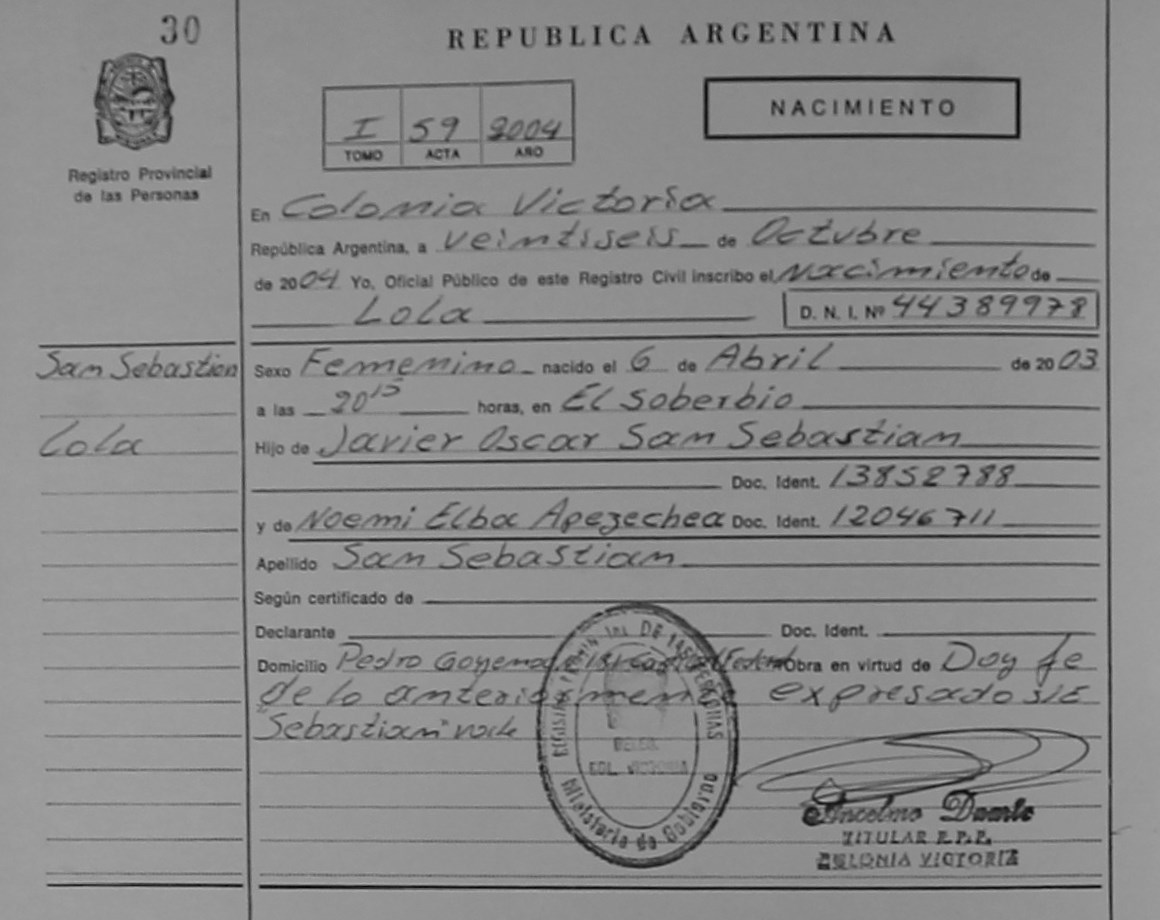 30
REPUBLICA ARGENTINA
Registro Provincial
de las Personas
I 59 2004
TOMO ACTA AÑO
NACIMIENTO
En Colonia Victoria
República Argentina, a veintiseis de Octubre
de 2004 Yo, Oficial Público de este Registro Civil inscribo el Nacimiento de
Lola D. N. I. Nº 44389978
San Sebastian
Sexo Femenino nacido el 6 de Abril de 2003
a las 20 15 horas, en El Soberbio
Lola
Hijo de Javier Oscar San Sebastian
Doc. Ident. 13852788
y de Noemi Elba Apezechea Doc. Ident. 12046711
Apellido San Sebastian
Según certificado de
Declarante Doc. Ident.
Domicilio Pedro Obra en virtud de Doy fe
de lo expresado S/E
"Sebastian" vale
DE LAS PERSONAS
COL. VICTORIA
Ministerio de Gobierno
Anselmo Duarte
TITULAR R.P.P.
COLONIA VICTORIA